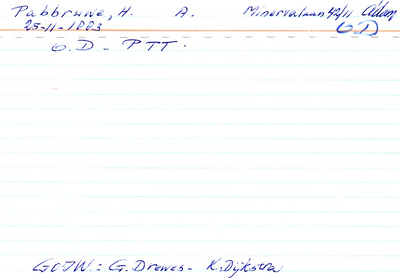 Pabbruwe, H. A. Minervalaan 42/11 Adam
25-11-1883 OD
O.D - PTT.
GOIW.: G. Drewes - K. Dijkstra